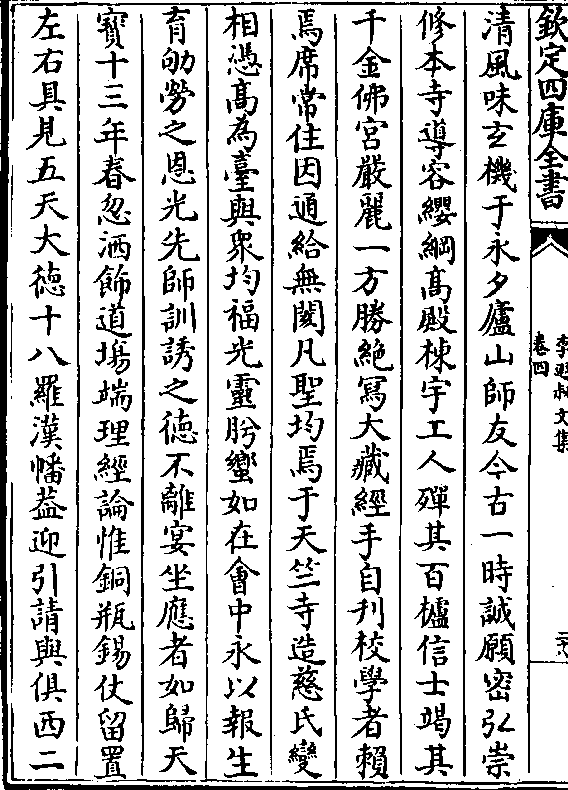 欽定四庫全書
李遐叔文集
卷四
清風味玄機于永夕廬山師友今古一時誠願密弘崇
修本寺導容纓綱高殿棟宇工人殫其百櫨信士竭其
千金佛宮嚴麗一方勝絶冩大藏經手自刋校學者賴
焉席常住因通給無闕凡聖均焉于天竺寺造慈氏變
相憑高為臺與衆均福光靈肹蠁如在會中永以報生
育劬勞之恩光先師訓誘之徳不離宴坐應者如歸天
寳十三年春忽洒飾道塲端理經論惟銅瓶錫仗留置
左右具見五天大徳十八羅漢幡葢迎引請與俱西二